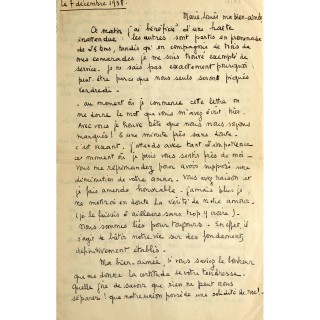 le 7 décembre 1938.
Marie-Louise ma bien-aimée
Ce matin j'ai bénéficié d'une halte
inattendue : les autres sont partis en promenade
de 28 kms, tandis qu'en compagnie de trois de
mes camarades je me suis trouvé exempté de
service. je ne sais pas exactement pourquoi
peut-être parce que nous seuls serons piqués
vendredi.
au moment où je commence cette lettre on
me donne le mot que vous m'avez écrit hier.
Avec vous je trouve bête que nous nous soyons
manqués ! à une minute près sans doute.
c'est vexant. j'attends avec tant d'impatience
ce moment où je puis vous sentir près de moi.
Vous me réprimandez pour avoir supposé une
diminution de votre amour. Vous avez raison et
je fais amende honorable. jamais plus je
ne mettrai en doute la vérité de notre amour.
(je le faisais d'ailleurs sans trop y croire).
Nous sommes liés pour toujours. En effet, il
s'agit de bâtir notre vie sur des fondements
définitivement établis.
Ma bien-aimée, si vous saviez le bonheur
que me donne la certitude de votre tendresse.
Quelle joie de savoir que rien ne peut nous
séparer ! que notre union possède une solidité de roc !